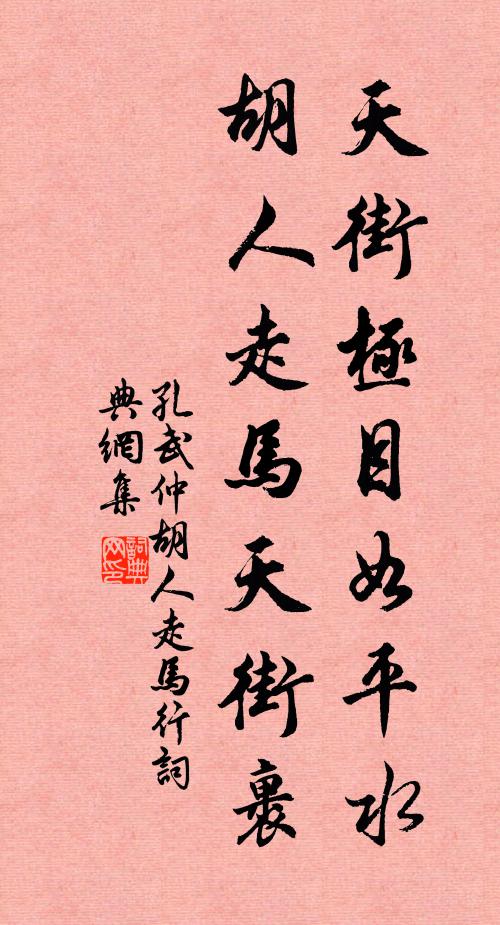 天街極目如平水
胡人走馬天街裏
孔武仲胡人走馬行詞
典網集
詞典
网印